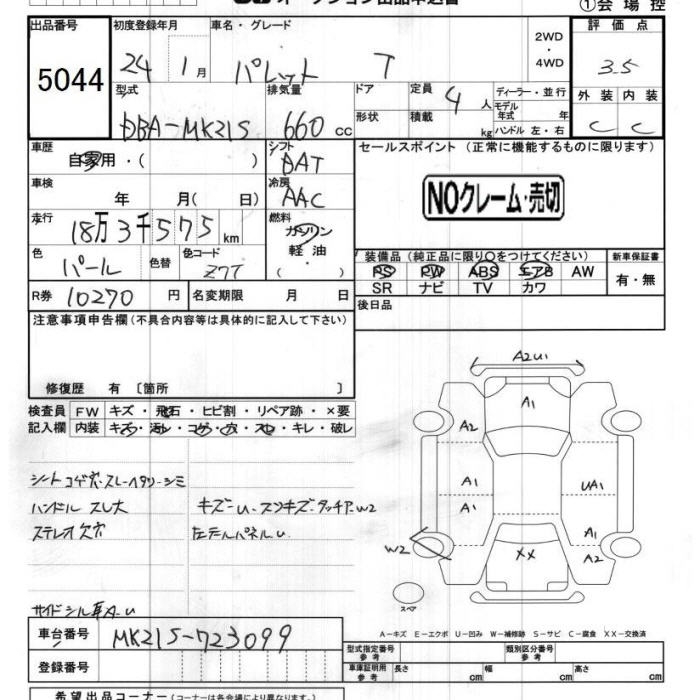 ①会 場 控
出品番号 初度登録年月 車名・グレード 2WD ・ 4WD 評 価 点
5044 24 1月 パレット T 3.5
型式 排気量 ドア 定員 4人 ディーラー・並行 外 装 内 装
DBA-MK21S 660cc 形状 積載 kg モデル年式 年 C C
ハンドル 左・右
車歴 シフト セールスポイント (正常に機能するものに限ります)
自家用・( ) DAT
車検 年 月( 日) 冷房 AAC NOクレーム・売切
走行 18万3千575km 燃料
ガソリン
色 パール 色替 色コード Z7T 軽 油
( )
装備品 (純正品に限り○をつけてください) 新車保証書
PS PW ABS エアB AW 有・無
SR ナビ TV カワ
R券 10270 円 名変期限 月 日
後日品
注意事項申告欄(不具合内容等は具体的に記入して下さい)
修復歴 有 〔箇所 〕
検査員 FW キズ・飛石・ヒビ割・リペア跡・×要
記入欄 内装 キズ・汚レ・コゲ・穴・スレ・キレ・破レ
シートコゲ穴・スレ・ヘタリ・シミ
ハンドル スレ大 キズーU・スリキズ・タッチア・W2
ステレオ欠穴 左テールパネルU
A2U1
A1
A2
A1 UA1
A1
A1
W2 XX A2
スペア
A-キズ E-エクボ U-凹み W-補修跡 S-サビ C-腐食 XX-交換済
車台番号 MK21S-723099
登録番号
型式指定番号 参考 類別区分番号 参考
車庫証明用 参考 長さ cm 幅 cm 高さ cm
希望出品コーナー(コーナーは各会場により異なります。)